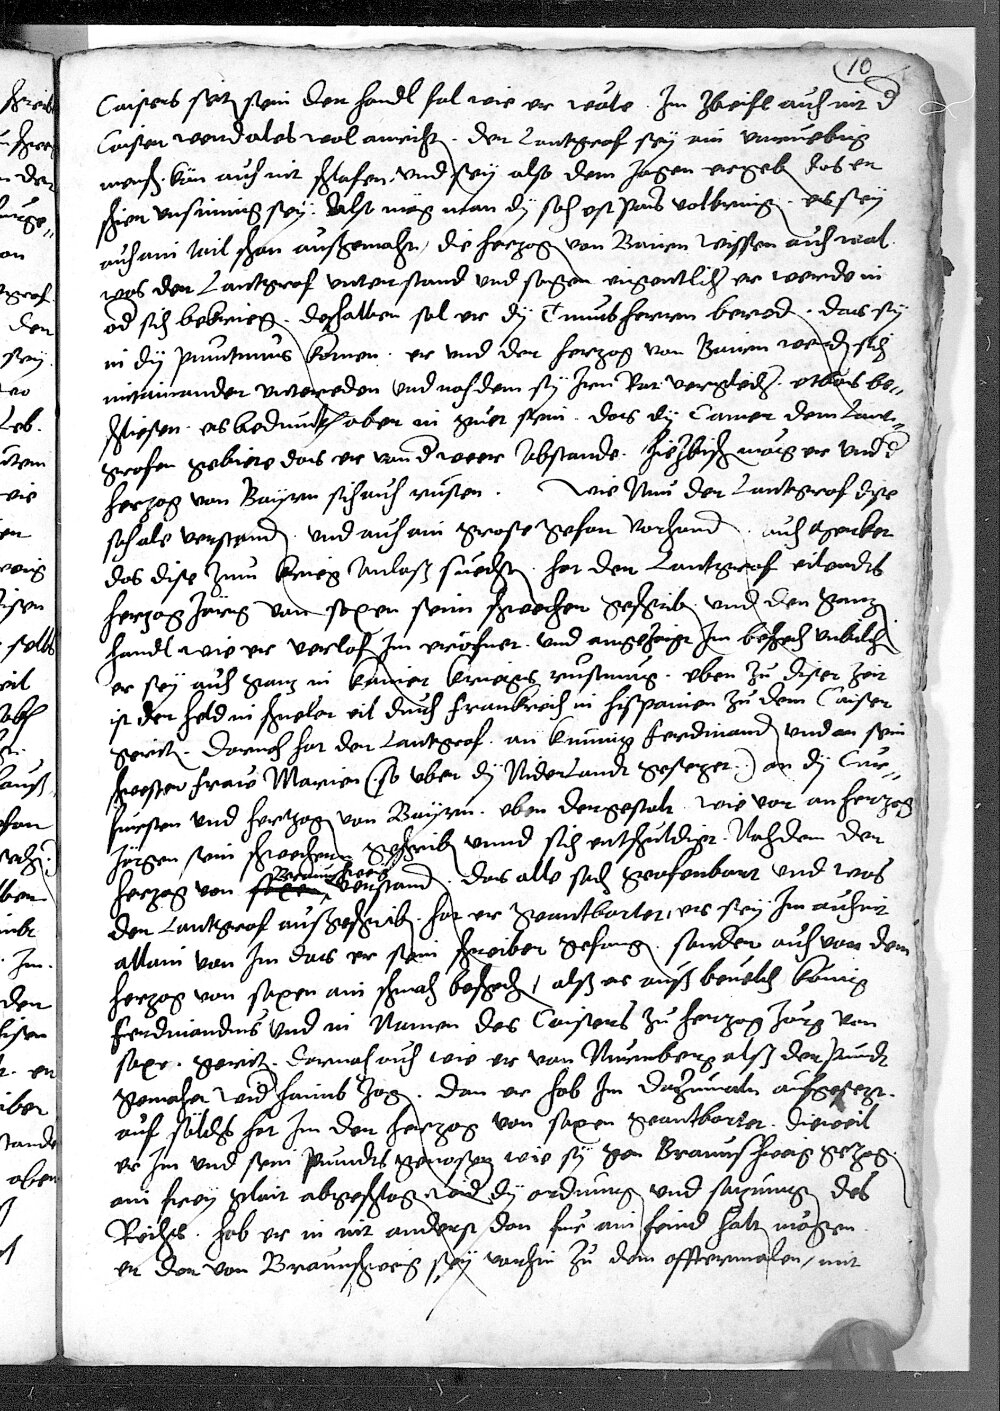 10
Caisers seit sein den handl hal wie er wöle. Im zweifl auch nit d
Caiser werd ales wol annicht. der Lantgraf sey ain unruebig
mensch. kün auch nit schlafen, und sey also dem Jagen ergeb das er
schier unsinnig sey. Also mög man dy sach est pas volbring. es sey
auch ain will schon außgemacht, die herzog von Bairn wissen auch wol
was der Lantgraf unterstand und sagen eigentlich er werde in
od sich bekrieg. deshalben sol er dy Bundsherren bered. das sy
in dy puntnus komen. er und der herzog von Bairn werd sich
miteinander untereden und nachdem sy Jren Rat vergleich. etwas be-
schliesen. es bedunckh aber in guet sein. das dy Camer dem Lant-
grafen gebiete das er von d weer Abstande. Hiezwisch mög er und d
herzog von Bayrn sich auch rusten. Wie Nun der Lantgraf dise
sach ales verstand, und auch ain grose gefar vorhand, auch gmerket
das dise zum krieg Anlas suecht, hat der Lantgraf eilendts
herzog Jörg von saxen seim schwecher geschrib und den ganz
handl wie er verlof Im eröfnet. und angezaigt Im beschech unbilich
er sey auch ganz in kainer kriegs rustung. eben zu diser zeit
ist der held in schneler eil durch Frankreich in hispanien zu dem Caiser
gerit. Darnach hat der Lantgraf an kunig Ferdinand und an sein
schwester Fraw Marien (so uber dy Niderlandt gesezet.) an dy Cur-
fuersten und herzog von Bayrn. eben dergestalt wie vor an herzog
Jörgen sein schwecher geschrib unnd sich entschuldigt. Nachdem der
herzog von Braunschweig verstand. das alle sach grofenbart und was
der Lantgraf außgeschrib. hat er geantbortet, es sey Im auch nit
allain von Im das er sein schreiber gefang. sonder auch von dem
herzog von saxen ain schmach beschech, alß er auß bevelch kunig
Ferdinandus und in Namen des Caisers zu herzog Jörg von
saxe. gerit. Darnach auch wie er von Nurmberg alß der pundt
gemacht wid haimb zog. dan er hab Im dazumaln aufgesezt.
auf sölchs hat Im der herzog von saxen geantbortet. dieweil
er Im und sein pundtsgenosen wie sy gen Braunschweig gezog
ain frey glait abgeschlag wid dy ordnung und sazung des
Reichs. hab er in nit anderst dan fur ain feind halt mögen.
er der von Braunschweig sey vorhin zu dem offtermalen, mit